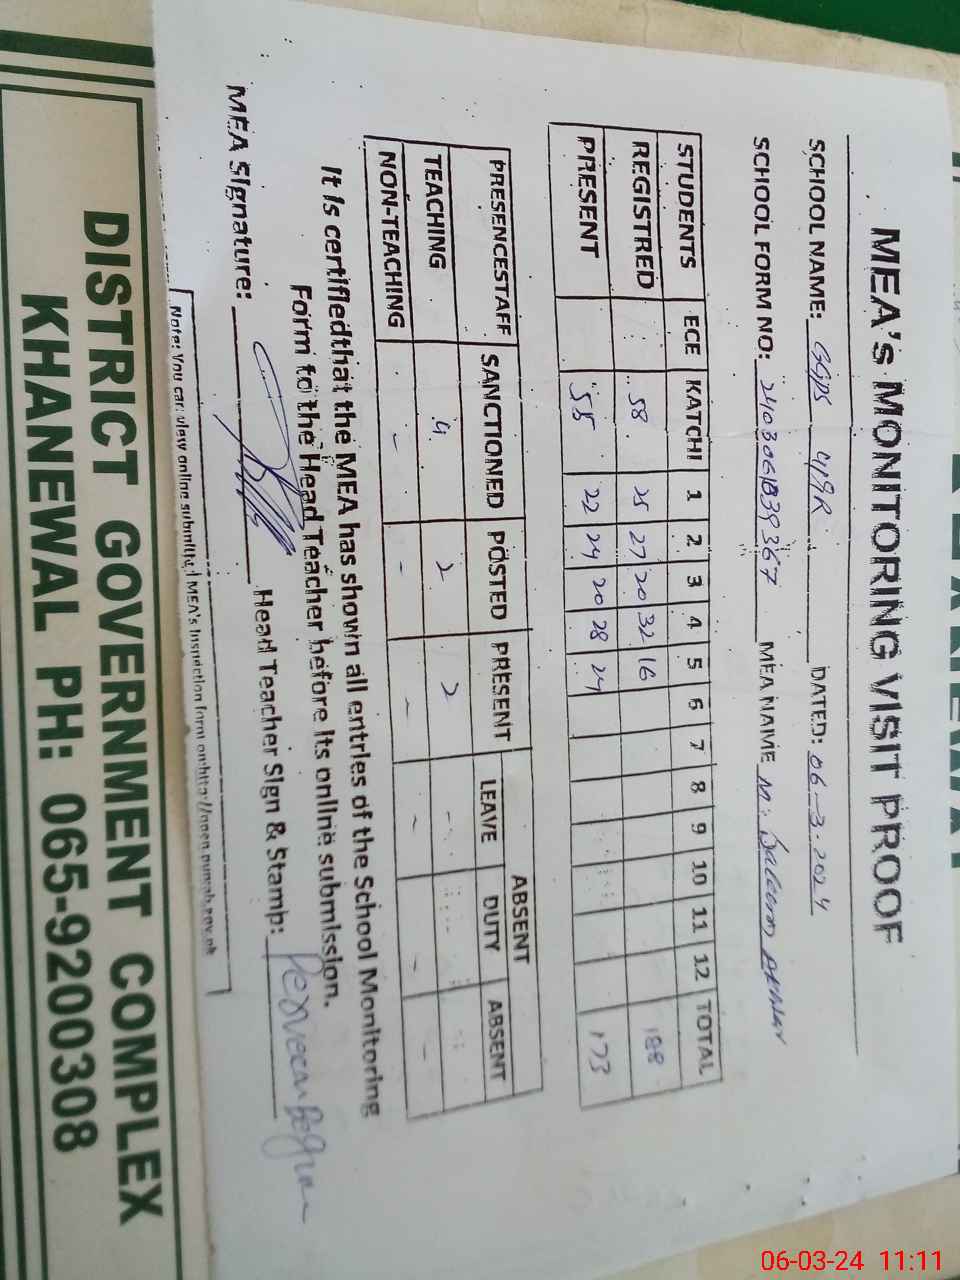 MEA's MONITORING VISIT PROOF
SCHOOL NAME: GGPS 4/9R DATED: 06-3-2024
SCHOOL FORM NO: MEA NAME M. Saleem Akhtar
STUDENTS ECE KATCHI 1 2 3 4 5 6 7 8 9 10 11 12 TOTAL
REGISTRED 58 25 27 20 32 16 188
PRESENT 55 22 24 20 28 24 173
ABSENT
PRESENCESTAFF SANCTIONED POSTED PRESENT LEAVE DUTY ABSENT
TEACHING 4 2 2 -
NON-TEACHING - - - - - -
It is certifiedthat the MEA has shown all entries of the School Monitoring
Form to the Head Teacher before its online submission.
MEA Signature: Head Teacher Sign & Stamp: Perveen Begum
Note: You can view online submitted MEA's Inspection form on:http://open.punjab.gov.pk
DISTRICT GOVERNMENT COMPLEX
KHANEWAL PH: 065-9200308
06-03-24 11:11